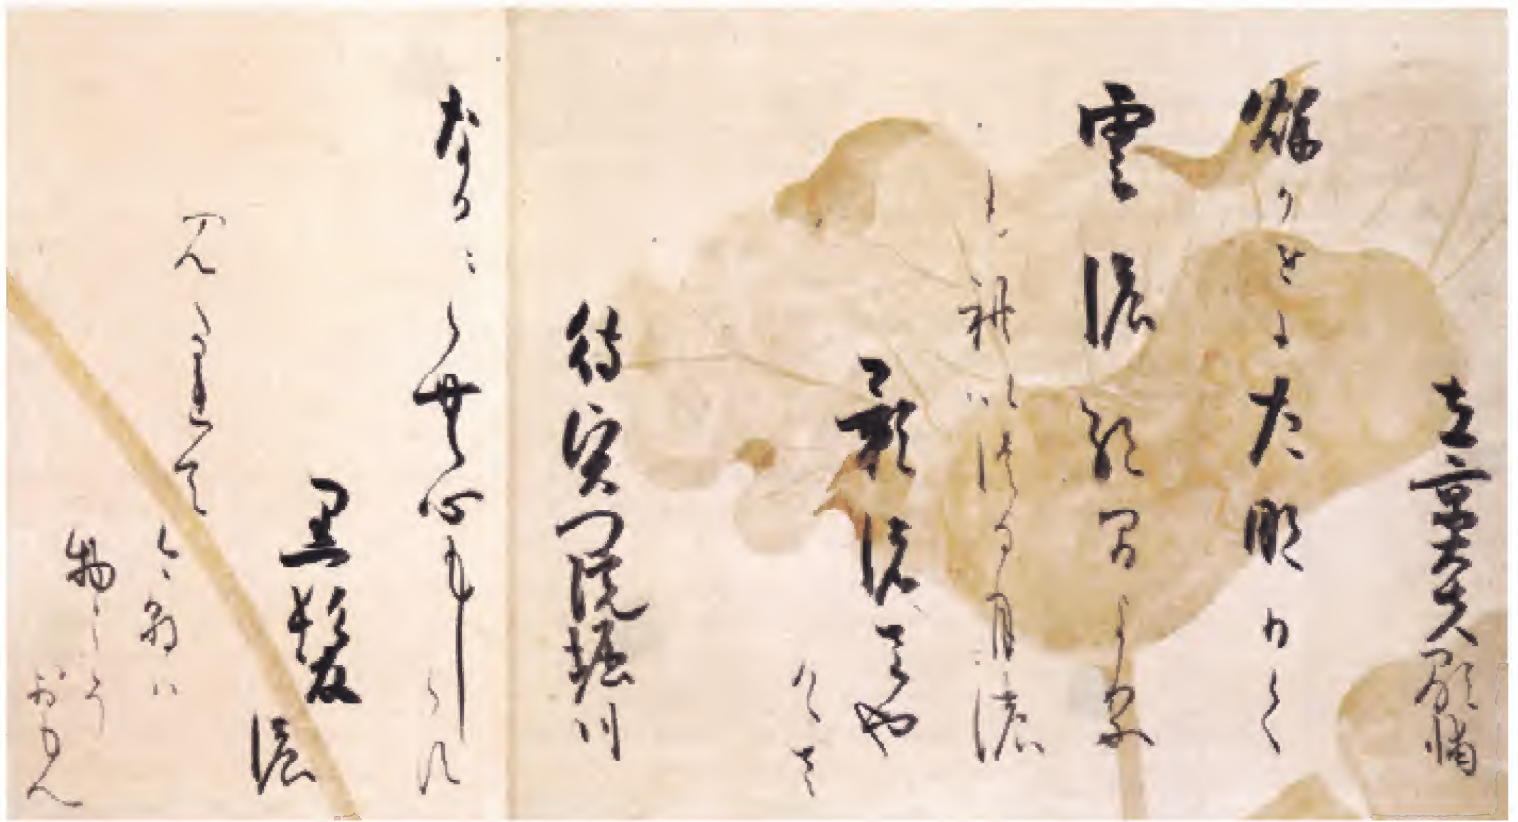 左京大夫顕輔
秋かせにたなひく
雲濃絶間より
もれいつる月濃
影濃さや
けさ
待賢門院堀川
なかゝらむ心もしらす
黒髪濃
みたれて
今朝ハ
物をこそ
おもへ